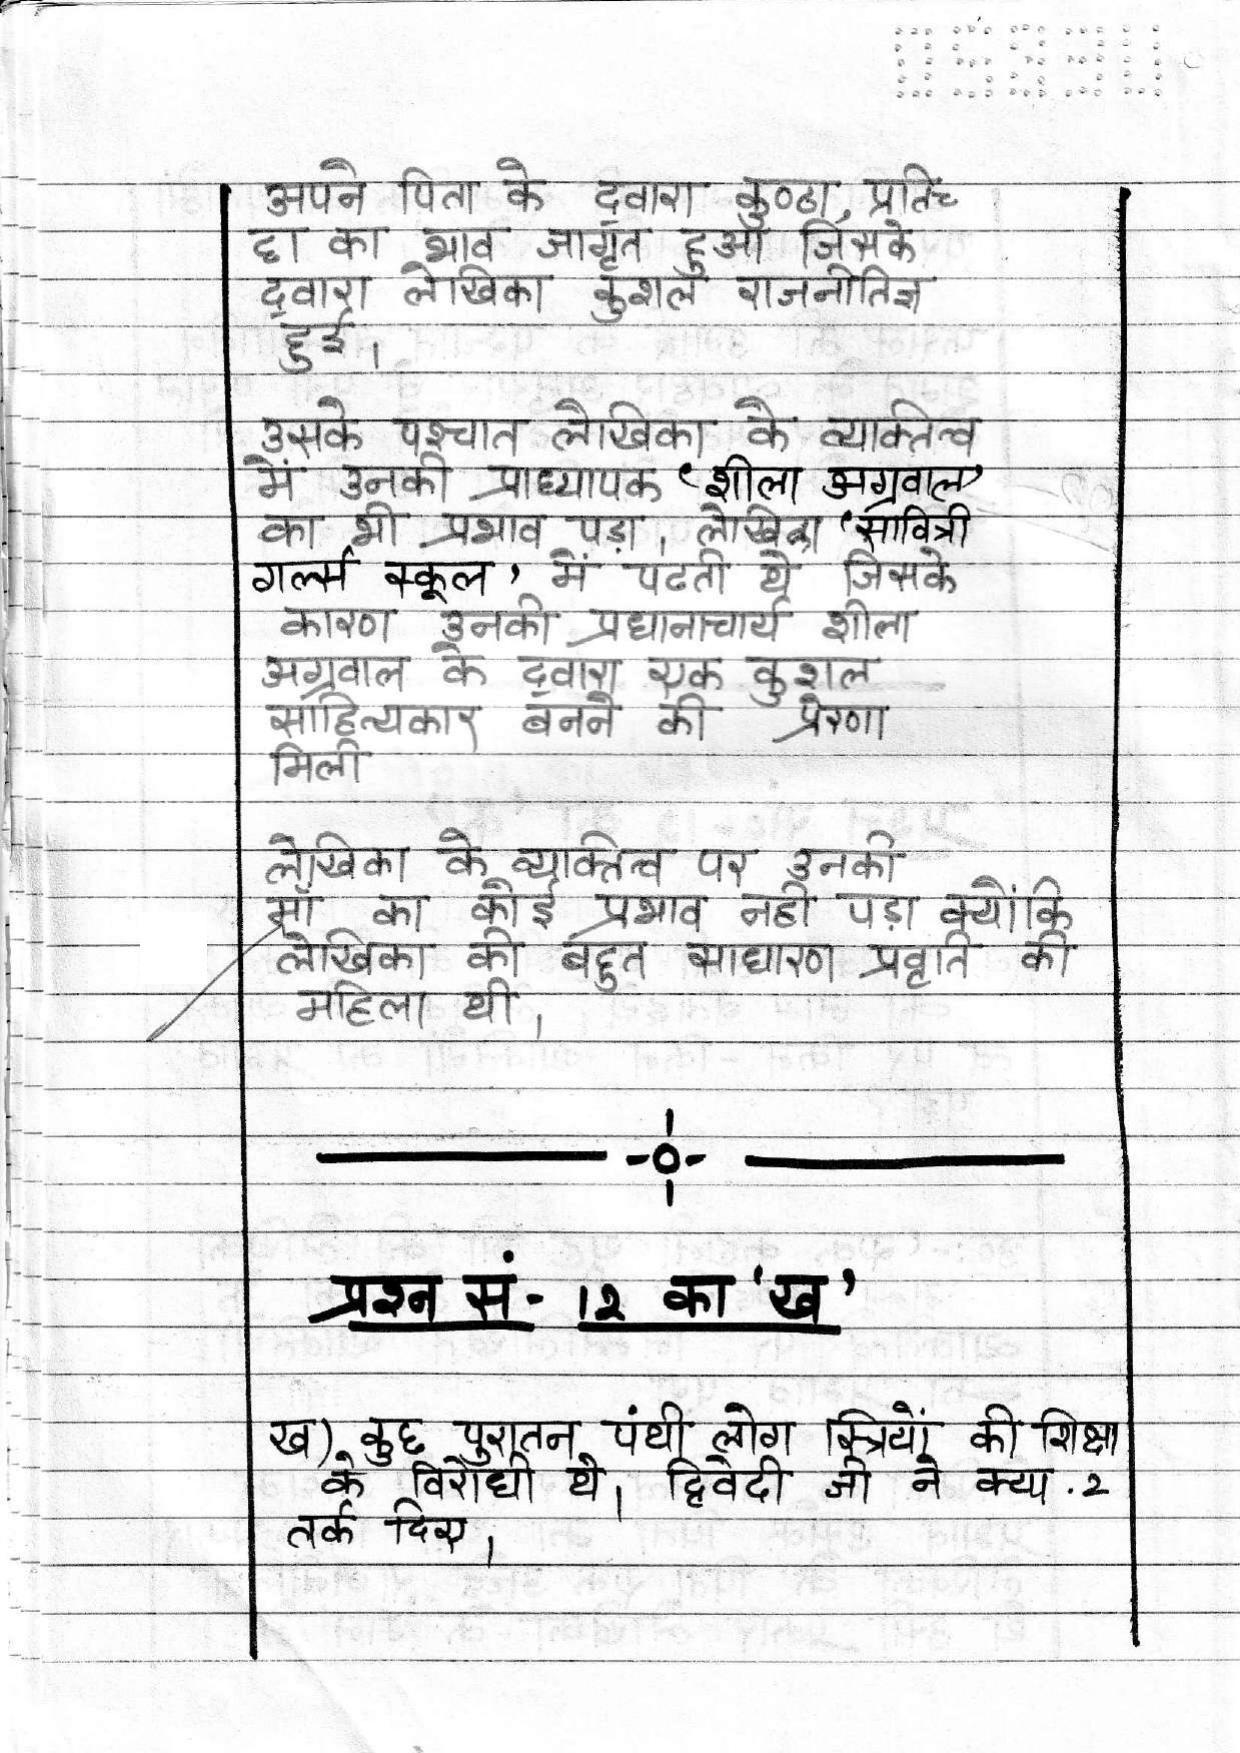 अपने पिता के द्वारा कुण्ठा, प्रतिच
छा का भाव जागृत हुआ जिसके
द्वारा लेखिका कुशल राजनीतिज्ञ
हुई।
उसके पश्चात लेखिका के व्यक्तित्व
में उनकी प्राध्यापक 'शीला अग्रवाल'
का भी प्रभाव पड़ा। लेखिका 'सावित्री
गर्ल्स स्कूल' में पढती थे जिसके
कारण उनकी प्रधानाचार्य शीला
अग्रवाल के द्वारा एक कुशल
साहित्यकार बनने की प्रेरणा
मिली
लेखिका के व्यक्तित्व पर उनकी
माँ का कोई प्रभाव नही पड़ा क्योंकि
लेखिका की बहुत साधारण प्रवृति की
महिला थी।
प्रश्न सं - 12 का 'ख'
ख) कुछ पुरातन पंथी लोग स्त्रियों की शिक्षा
के विरोधी थे। द्विवेदी जी ने क्या.2
तर्क दिए।